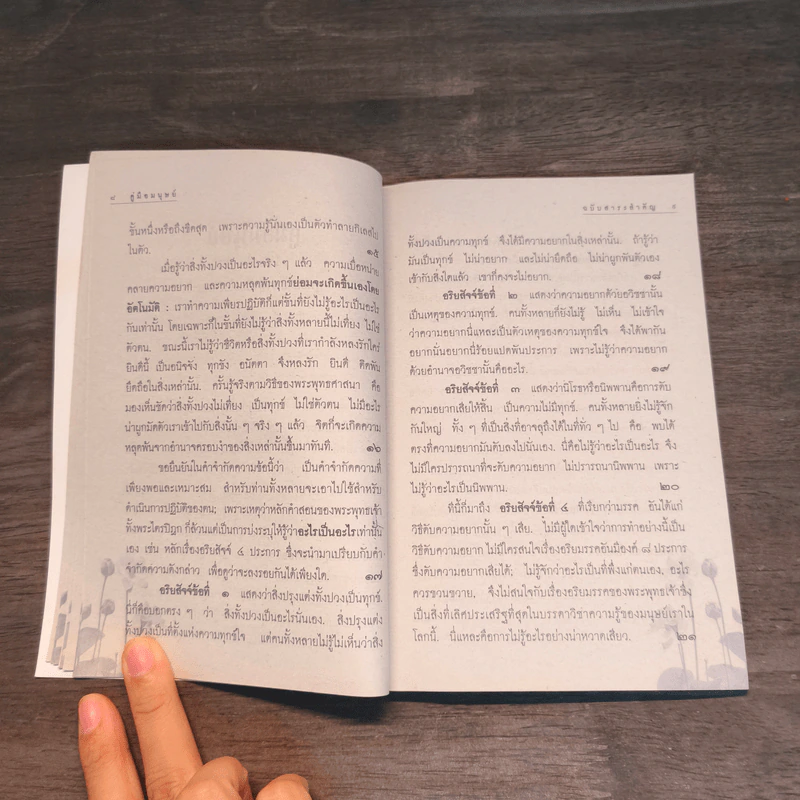 ๘ คู่มือมนุษย์
ขั้นหนึ่งหรือถึงขีดสุด เพราะความรู้นั่นเองเป็นตัวทำลายกิเลสไป
ในตัว. ๑๕
เมื่อรู้ว่าสิ่งทั้งปวงเป็นอะไรจริง ๆ แล้ว ความเบื่อหน่าย
คลายความอยาก และความหลุดพ้นทุกข์ย่อมจะเกิดขึ้นเองโดย
อัตโนมัติ : เราทำความเพียรปฏิบัติก็แต่ขั้นที่ยังไม่รู้อะไรเป็นอะไร
กันเท่านั้น โดยเฉพาะก็ในขั้นที่ยังไม่รู้ว่าสิ่งทั้งหลายนี้ไม่เที่ยง ไม่ใช่
ตัวตน. ขณะนี้เราไม่รู้ว่าชีวิตหรือสิ่งทั้งปวงที่เรากำลังหลงรักใคร่
ยินดีนี้ เป็นอนิจจัง ทุกขัง อนัตตา จึงหลงรัก ยินดี ติดพัน
ยึดถือในสิ่งเหล่านั้น. ครั้นรู้จริงตามวิธีของพระพุทธศาสนา คือ
มองเห็นชัดว่าสิ่งทั้งปวงไม่เที่ยง เป็นทุกข์ ไม่ใช่ตัวตน ไม่มีอะไร
น่าผูกมัดตัวเราเข้าไปกับสิ่งนั้น ๆ จริง ๆ แล้ว จิตก็จะเกิดความ
หลุดพ้นจากอำนาจครอบงำของสิ่งเหล่านั้นขึ้นมาทันที. ๑๖
ขอยืนยันในคำจำกัดความข้อนี้ว่า เป็นคำจำกัดความที่
เพียงพอและเหมาะสม สำหรับท่านทั้งหลายจะเอาไปใช้สำหรับ
ดำเนินการปฏิบัติของตน; เพราะเหตุว่าหลักคำสอนของพระพุทธเจ้า
ทั้งพระไตรปิฎก ก็ล้วนแต่เป็นการบ่งระบุให้รู้ว่าอะไรเป็นอะไรเท่านั้น
เอง เช่น หลักเรื่องอริยสัจจ์ ๔ ประการ ซึ่งจะนำมาเปรียบกับคำ
จำกัดความดังกล่าว เพื่อดูว่าจะลงรอยกันได้เพียงใด. ๑๗
อริยสัจจ์ข้อที่ ๑ แสดงว่าสิ่งปรุงแต่งทั้งปวงเป็นทุกข์.
นี่ก็คือบอกตรง ๆ ว่า สิ่งทั้งปวงเป็นอะไรนั่นเอง. สิ่งปรุงแต่ง
ทั้งปวงเป็นที่ตั้งแห่งความทุกข์ใจ แต่คนทั้งหลายไม่รู้ไม่เห็นว่าสิ่ง
ฉบับสาระสำคัญ ๙
ทั้งปวงเป็นความทุกข์ จึงได้มีความอยากในสิ่งเหล่านั้น. ถ้ารู้ว่า
มันเป็นทุกข์ ไม่น่าอยาก และไม่น่ายึดถือ ไม่น่าผูกพันตัวเอง
เข้ากับสิ่งใดแล้ว เขาก็คงจะไม่อยาก. ๑๘
อริยสัจจ์ข้อที่ ๒ แสดงว่าความอยากด้วยอวิชชานั้น
เป็นเหตุของความทุกข์. คนทั้งหลายก็ยังไม่รู้ ไม่เห็น ไม่เข้าใจ
ว่าความอยากนี่แหละเป็นตัวเหตุของความทุกข์ใจ จึงได้พากัน
อยากนั่นอยากนี่ร้อยแปดพันประการ เพราะไม่รู้ว่าความอยาก
ด้วยอำนาจอวิชชานั้นคืออะไร. ๑๙
อริยสัจจ์ข้อที่ ๓ แสดงว่านิโรธหรือนิพพานคือการดับ
ความอยากเสียให้สิ้น เป็นความไม่มีทุกข์. คนทั้งหลายยิ่งไม่รู้จัก
กันใหญ่ ทั้ง ๆ ที่เป็นสิ่งที่อาจลุถึงได้ในที่ทั่ว ๆ ไป คือ พบได้
ตรงที่ความอยากมันดับลงไปนั่นเอง. นี่คือไม่รู้ว่าอะไรเป็นอะไร จึง
ไม่มีใครปรารถนาที่จะดับความอยาก ไม่ปรารถนานิพพาน เพราะ
ไม่รู้ว่าอะไรเป็นนิพพาน. ๒๐
ทีนี้ก็มาถึง อริยสัจจ์ข้อที่ ๔ ที่เรียกว่ามรรค อันได้แก่
วิธีดับความอยากนั้น ๆ เสีย. ไม่มีผู้ใดเข้าใจว่าการทำอย่างนี้เป็น
วิธีดับความอยาก ไม่มีใครสนใจเรื่องอริยมรรคอันมีองค์ ๘ ประการ
ซึ่งดับความอยากเสียได้; ไม่รู้จักว่าอะไรเป็นที่พึ่งแก่ตนเอง, อะไร
ควรขวนขวาย, จึงไม่สนใจกับเรื่องอริยมรรคของพระพุทธเจ้าซึ่ง
เป็นสิ่งที่เลิศประเสริฐที่สุดในบรรดาวิชาความรู้ของมนุษย์เราใน
โลกนี้. นี่แหละคือการไม่รู้อะไรอย่างน่าหวาดเสียว. ๒๑